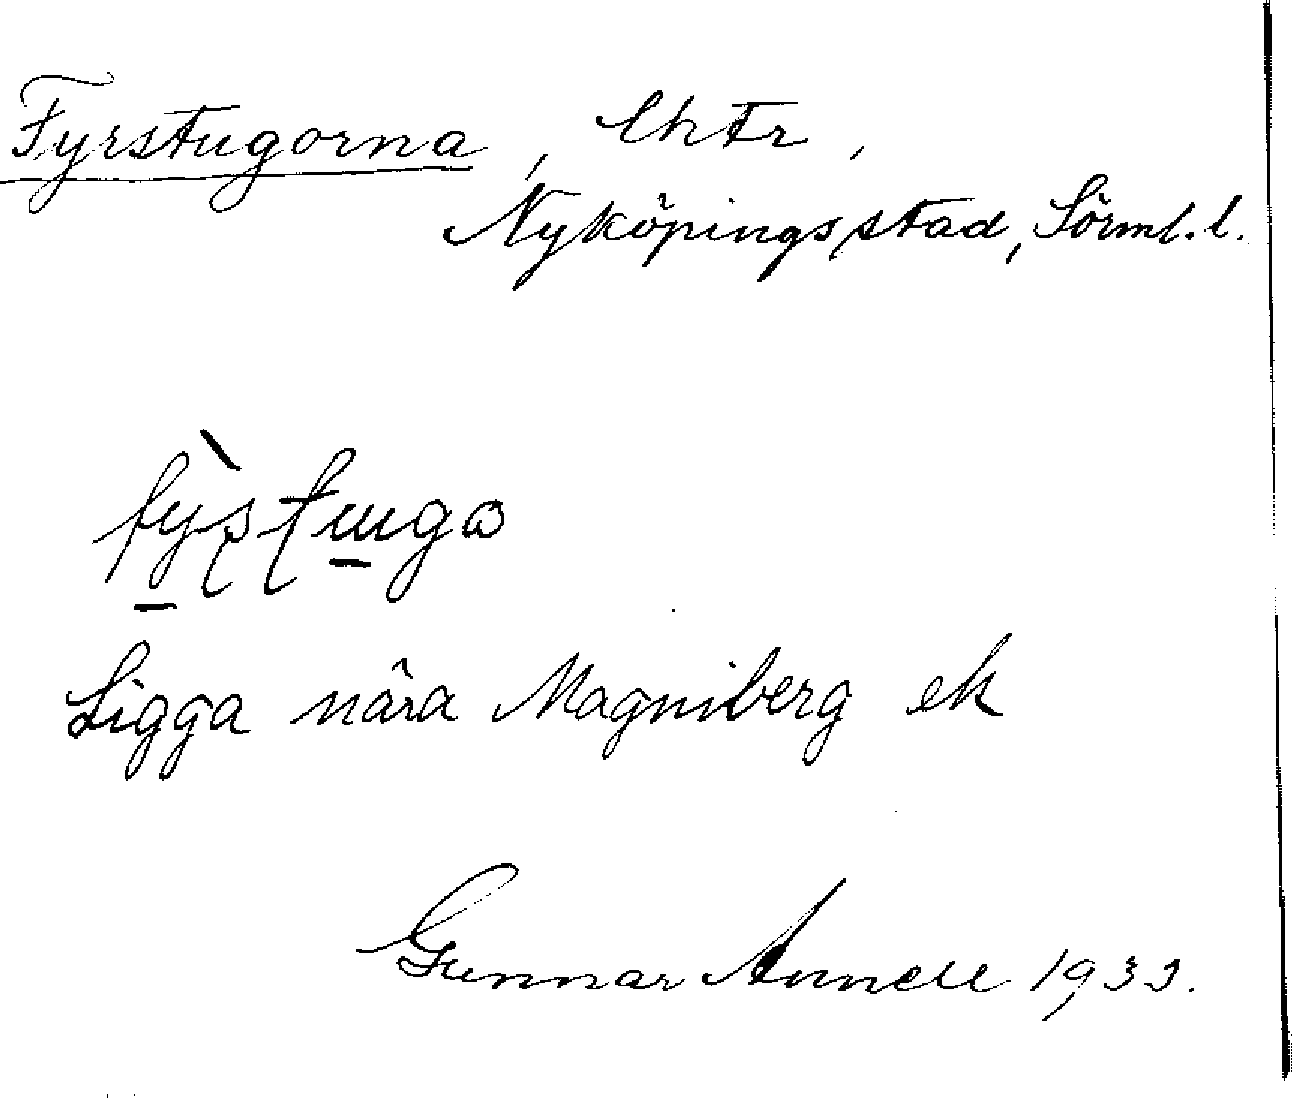 Fyrstugorna, lhtr,
Nyköpings stad, Sörml. l.
Ligga nära Magniberg ek
Gunnar Annell 1933.